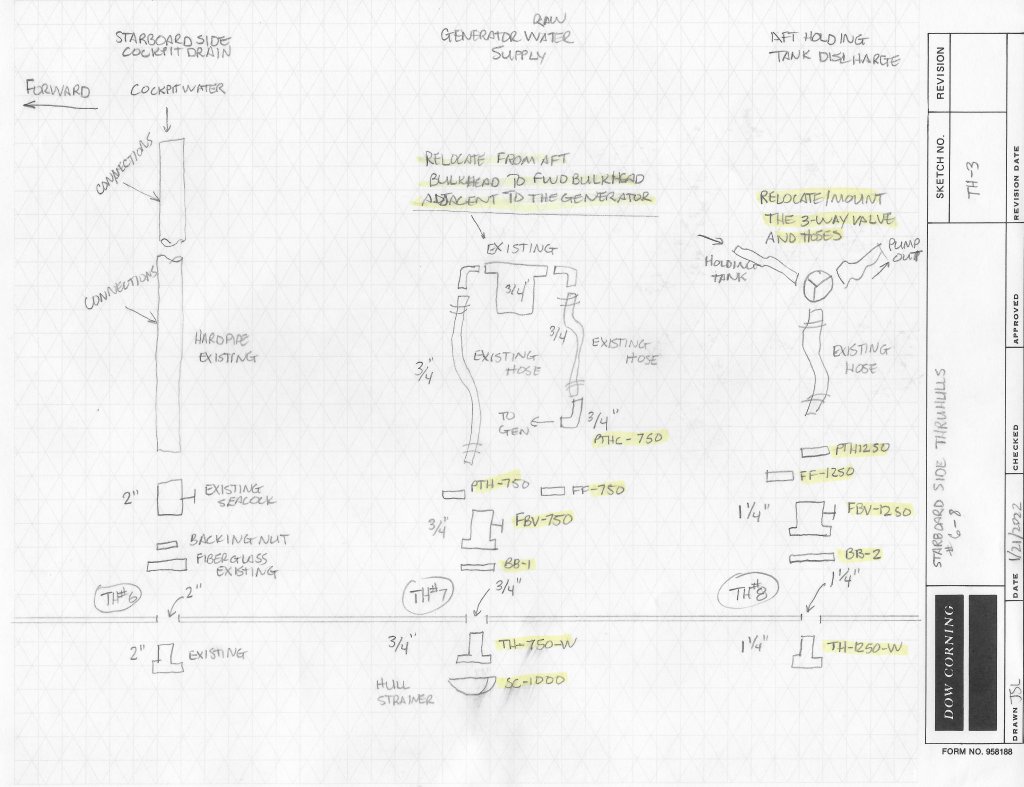 STARBOARD SIDE
COCKPIT DRAIN
FORWARD
COCKPIT WATER
CONNECTIONS
CONNECTIONS
HARDPIPE
EXISTING
2"
EXISTING
SEACOCK
BACKING NUT
FIBERGLASS
EXISTING
TH#6
2"
2"
EXISTING
RAW
GENERATOR WATER
SUPPLY
RELOCATE FROM AFT
BULKHEAD TO FWD BULKHEAD
ADJACENT TO THE GENERATOR
EXISTING
3/4"
3/4
3/4
EXISTING
HOSE
EXISTING
HOSE
TO
GEN
3/4"
PTHC-750
PTH-750
FF-750
3/4"
FBV-750
BB-1
TH#7
3/4"
3/4"
TH-750-W
HULL
STRAINER
SC-1000
AFT HOLDING
TANK DISCHARGE
RELOCATE/MOUNT
THE 3-WAY VALVE
AND HOSES
HOLDING
TANK
PUMP
OUT
EXISTING
HOSE
PTH1250
FF-1250
1 1/4"
FBV-1250
BB-2
TH#8
1 1/4"
1 1/4"
TH-1250-W
REVISION
SKETCH NO.
TH-3
REVISION DATE
STARBOARD SIDE THRUHULLS
#6-8
APPROVED
CHECKED
DATE 1/21/2022
DOW CORNING
DRAWN JSL
FORM NO. 958188